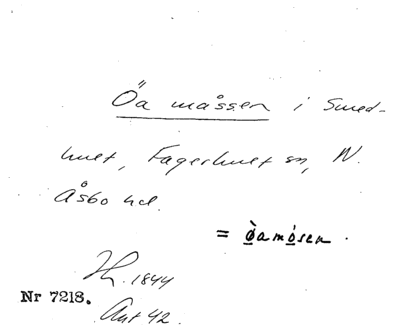 Öa måssen i Smed-
hult, Fagerhult sn, N.
Åsbo hd.
= öamosen.
1844
Nr 7218.
Ant 42.